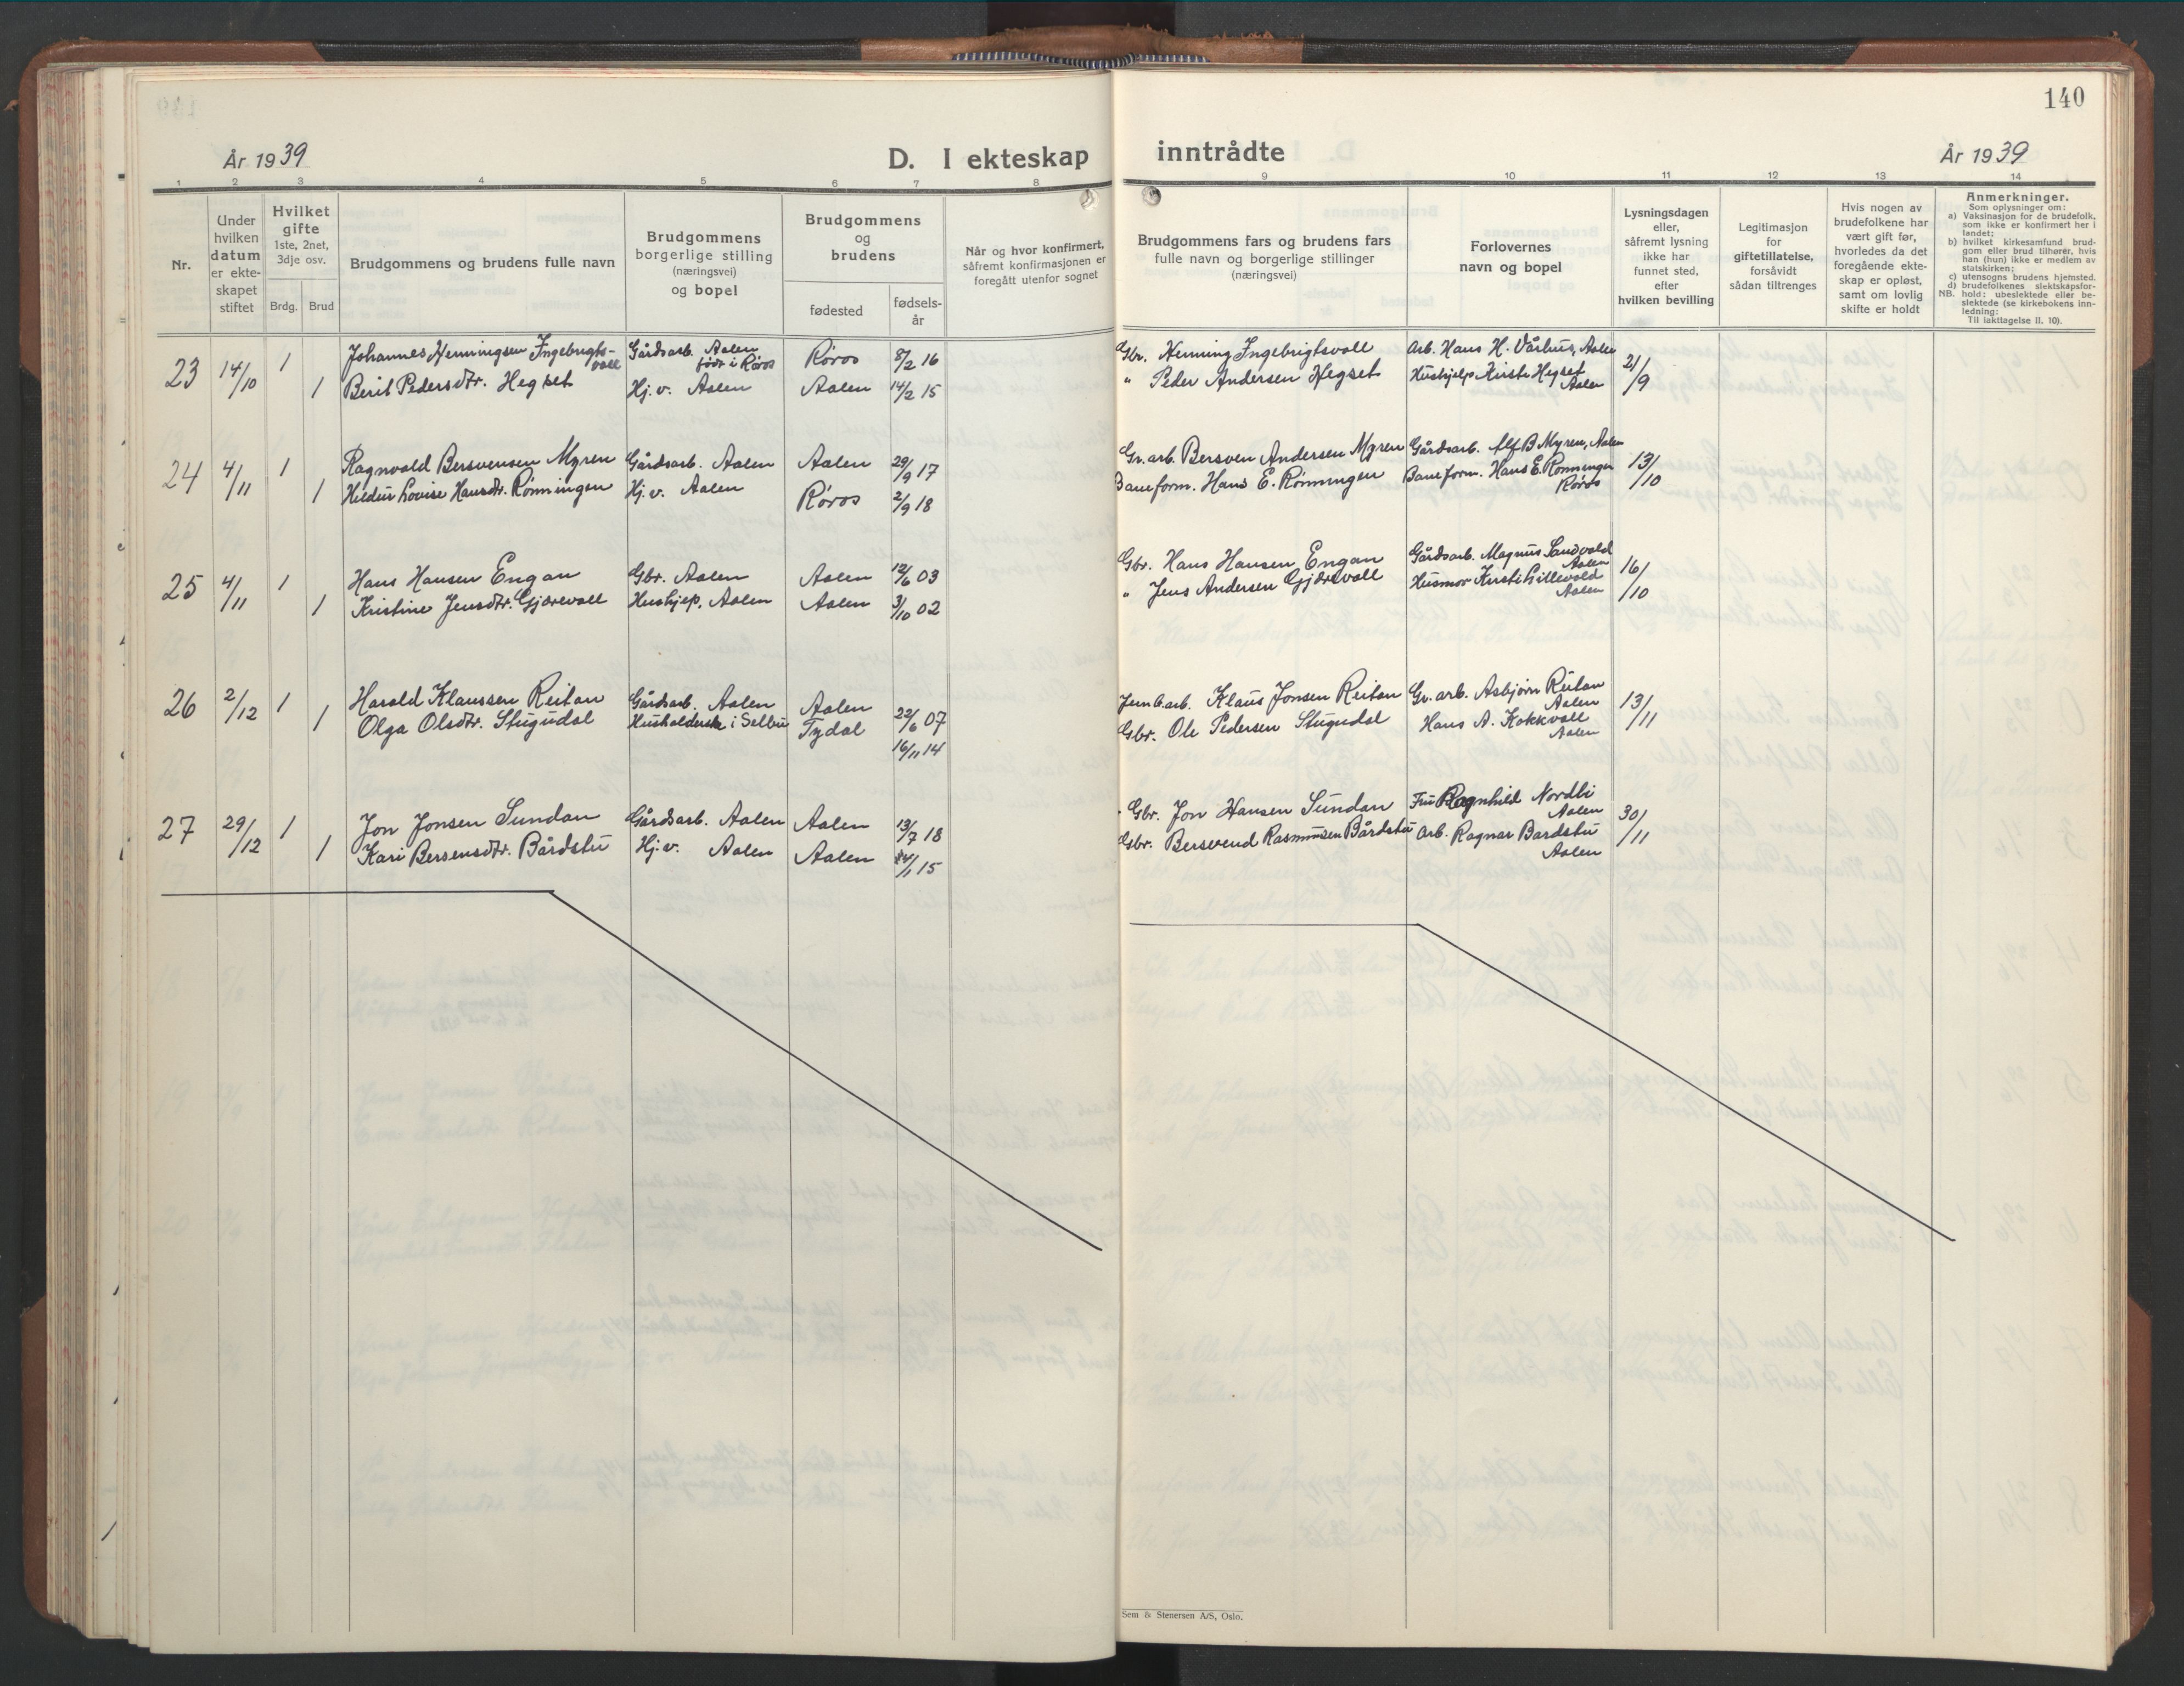 140
År 1939
D. I ekteskap
inntrådte
År 1939
1 2 3 4 5 6 7 8
9 10 11 12 13 14
Nr.
Under
hvilken
datum
er ekte-
skapet
stiftet
Hvilket
gifte
1ste, 2net,
3dje osv.
Brdg. Brud
Brudgommens og brudens fulle navn
Brudgommens
borgerlige stilling
(næringsvei)
og bopel
Brudgommens
og
brudens
fødested
fødsels-
år
Når og hvor konfirmert,
såfremt konfirmasjonen er
foregått utenfor sognet
Brudgommens fars og brudens fars
fulle navn og borgerlige stillinger
(næringsvei)
Forlovernes
navn og bopel
Lysningsdagen
eller,
såfremt lysning
ikke har
funnet sted,
efter
hvilken bevilling
Legitimasjon
for
giftetillatelse,
forsåvidt
sådan tiltrenges
Hvis nogen av
brudefolkene har
vært gift før,
hvorledes da det
foregående ekte-
skap er opløst,
samt om lovlig
skifte er holdt
Anmerkninger.
Som oplysninger om:
a) Vaksinasjon for de brudefolk,
som ikke er konfirmert her i
landet;
b) hvilket kirkesamfund brud-
gom eller brud tilhører, hvis
han (hun) ikke er medlem av
statskirken;
c) utensogns brudens hjemsted.
d) brudefolkenes slektskapsfor-
NB. hold: ubeslektede eller be-
slektede (se kirkebokens inn-
ledning:
Til iakttagelse II. 10).
23 14/10 1 Johannes Henningsen Ingebrigts-
voll
Gårdsarb. Aalen
født i Røros
Røros 8/2 16
Gbr. Henning Ingebrigtsvoll
Arb. Hans H. Vårhus, Aalen
21/9
1 Berit Pedersdtr. Hegset Hj. v. Aalen Aalen 14/2 15
" Peder Andersen Hegset
Hushjelp Kirsti Hegset
Aalen
24 4/11 1 Ragnvald Bersvensen Myren Gårdsarb. Aalen Aalen 29/9 17
Gr. arb. Bersven Andersen Myren Gårdsarb. Alf B Myren, Aalen
13/10
1 Hildur Lovise Hansdtr. Rønningen Hj. v. Aalen Røros 2/9 18
Baneform. Hans E. Rønningen Baneform. Hans E. Rønningen
Røros
25 4/11 1 Hans Hansen Engan Gbr. Aalen Aalen 12/6 03
Gbr. Hans Hansen Engan Gårdsarb. Magnus Sandvold
Aalen
16/10
1 Kristine Jensdtr. Gjærevoll Hushjep, Aalen Aalen 3/10 02
" Jens Andersen Gjærevoll Husmor Kirsti Lillevold
Aalen
26 2/12 1 Harald Klaussen Reitan Gårdsarb. Aalen Aalen 22/6 07
Jernb.arb. Klaus Jonsen Reitan Gr. arb. Asbjørn Reitan
Aalen
13/11
1 Olga Olsdtr. Stugudal Husholderske i Selbu Tydal 16/11 14
Gbr. Ole Pedersen Stugudal Hans A. Kokkvoll
Aalen
27 29/12 1 Jon Jonsen Sundan Gårdsarb. Aalen Aalen 13/7 18
Gbr. Jon Hansen Sundan Fru Ragnhild Nordli
Aalen
30/11
1 Kari Bersensdtr. Bårdstu Hj. v. Aalen Aalen 15
Gbr. Bersvend Rasmussen Bårdstu Arb. Ragnar Bardstu
Aalen
Sem & Stenersen A/S, Oslo.